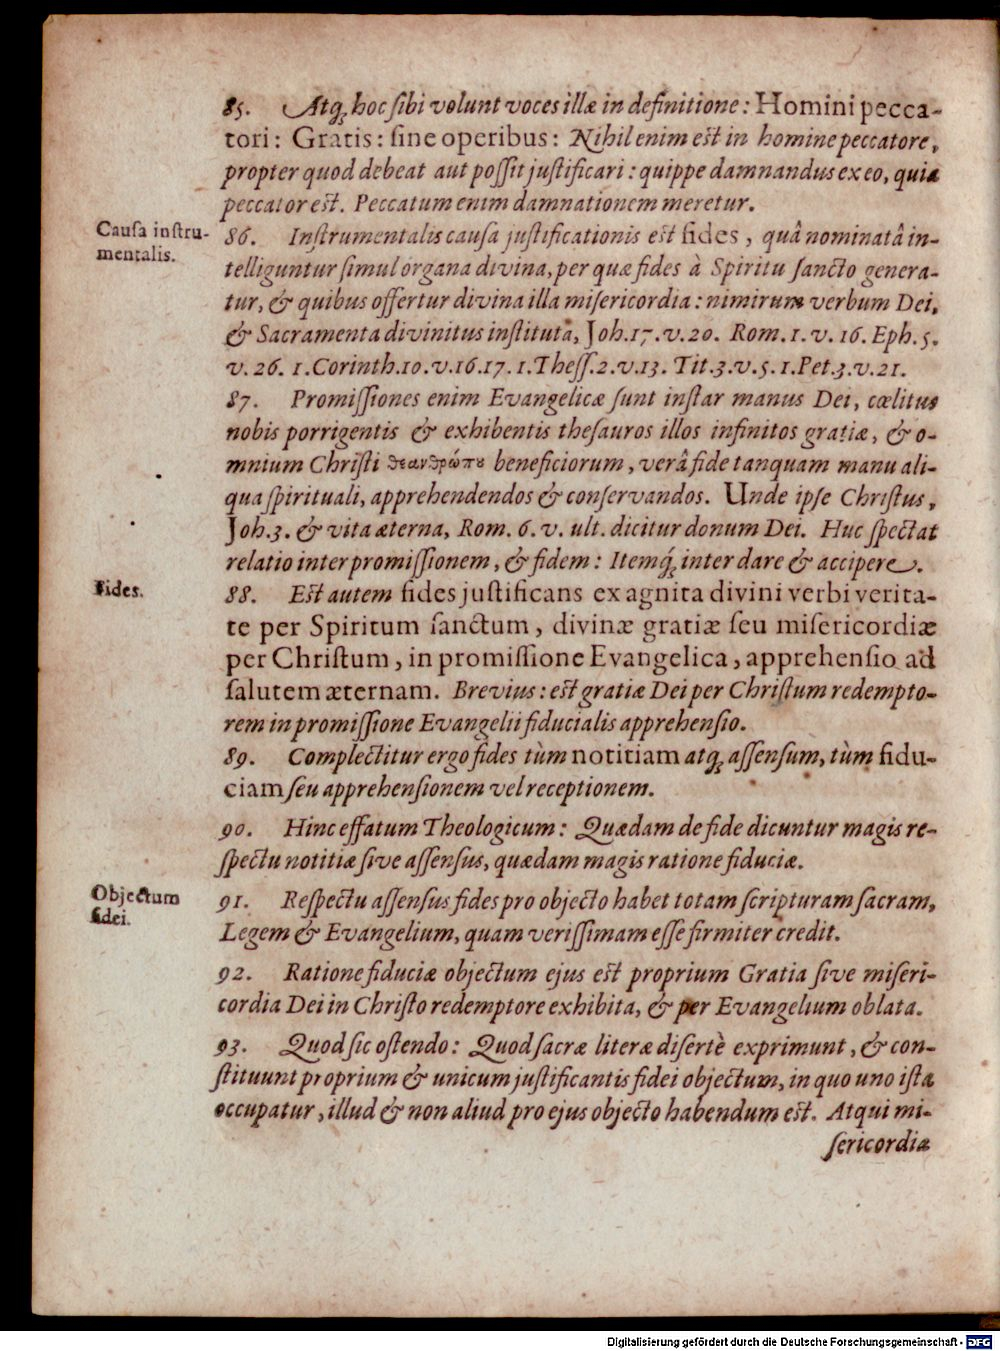 85. Atq; hoc sibi volunt voces illæ in definitione: Homini pecca-
tori: Gratis: sine operibus: Nihil enim est in homine peccatore,
propter quod debeat aut possit justificari: quippe damnandus ex eo, quia
peccator est. Peccatum enim damnationem meretur.
Causa instru-
mentalis.
86. Instrumentalis causa justificationis est fides, quâ nominatâ in-
telliguntur simul organa divina, per quæ fides à Spiritu sancto genera-
tur, & quibus offertur divina illa misericordia: nimirum verbum Dei,
& Sacramenta divinitus instituta, Joh. 17. v. 20. Rom. 1. v. 16. Eph. 5.
v. 26. 1. Corinth. 10. v. 16. 17. 1. Thess. 2. v. 13. Tit. 3. v. 5. 1. Pet. 3. v. 21.
87. Promissiones enim Evangelicæ sunt instar manus Dei, cœlitus
nobis porrigentis & exhibentis thesauros illos infinitos gratiæ, & o-
mnium Christi θεανθρώπου beneficiorum, verâ fide tanquam manu ali-
qua spirituali, apprehendendos & conservandos. Unde ipse Christus,
Joh. 3. & vita æterna, Rom. 6. v. ult. dicitur donum Dei. Huc spectat
relatio inter promissionem, & fidem: Itemq; inter dare & accipere.
Fides.
88. Est autem fides justificans ex agnita divini verbi verita-
te per Spiritum sanctum, divinæ gratiæ seu misericordiæ
per Christum, in promissione Evangelica, apprehensio ad
salutem æternam. Brevius: est gratiæ Dei per Christum redempto-
rem in promissione Evangelii fiducialis apprehensio.
89. Complectitur ergo fides tùm notitiam atq; assensum, tùm fidu-
ciam seu apprehensionem vel receptionem.
90. Hinc effatum Theologicum: Quædam de fide dicuntur magis re-
spectu notitiæ sive assensus, quædam magis ratione fiduciæ.
Objectum
fidei.
91. Respectu assensus fides pro objecto habet totam scripturam sacram,
Legem & Evangelium, quam verissimam esse firmiter credit.
92. Ratione fiduciæ objectum ejus est proprium Gratia sive miseri-
cordia Dei in Christo redemptore exhibita, & per Evangelium oblata.
93. Quod sic ostendo: Quod sacræ literæ disertè exprimunt, & con-
stituunt proprium & unicum justificantis fidei objectum, in quo uno ista
occupatur, illud & non aliud pro ejus objecto habendum est. Atqui mi-
sericordia
Digitalisierung gefördert durch die Deutsche Forschungsgemeinschaft - DFG